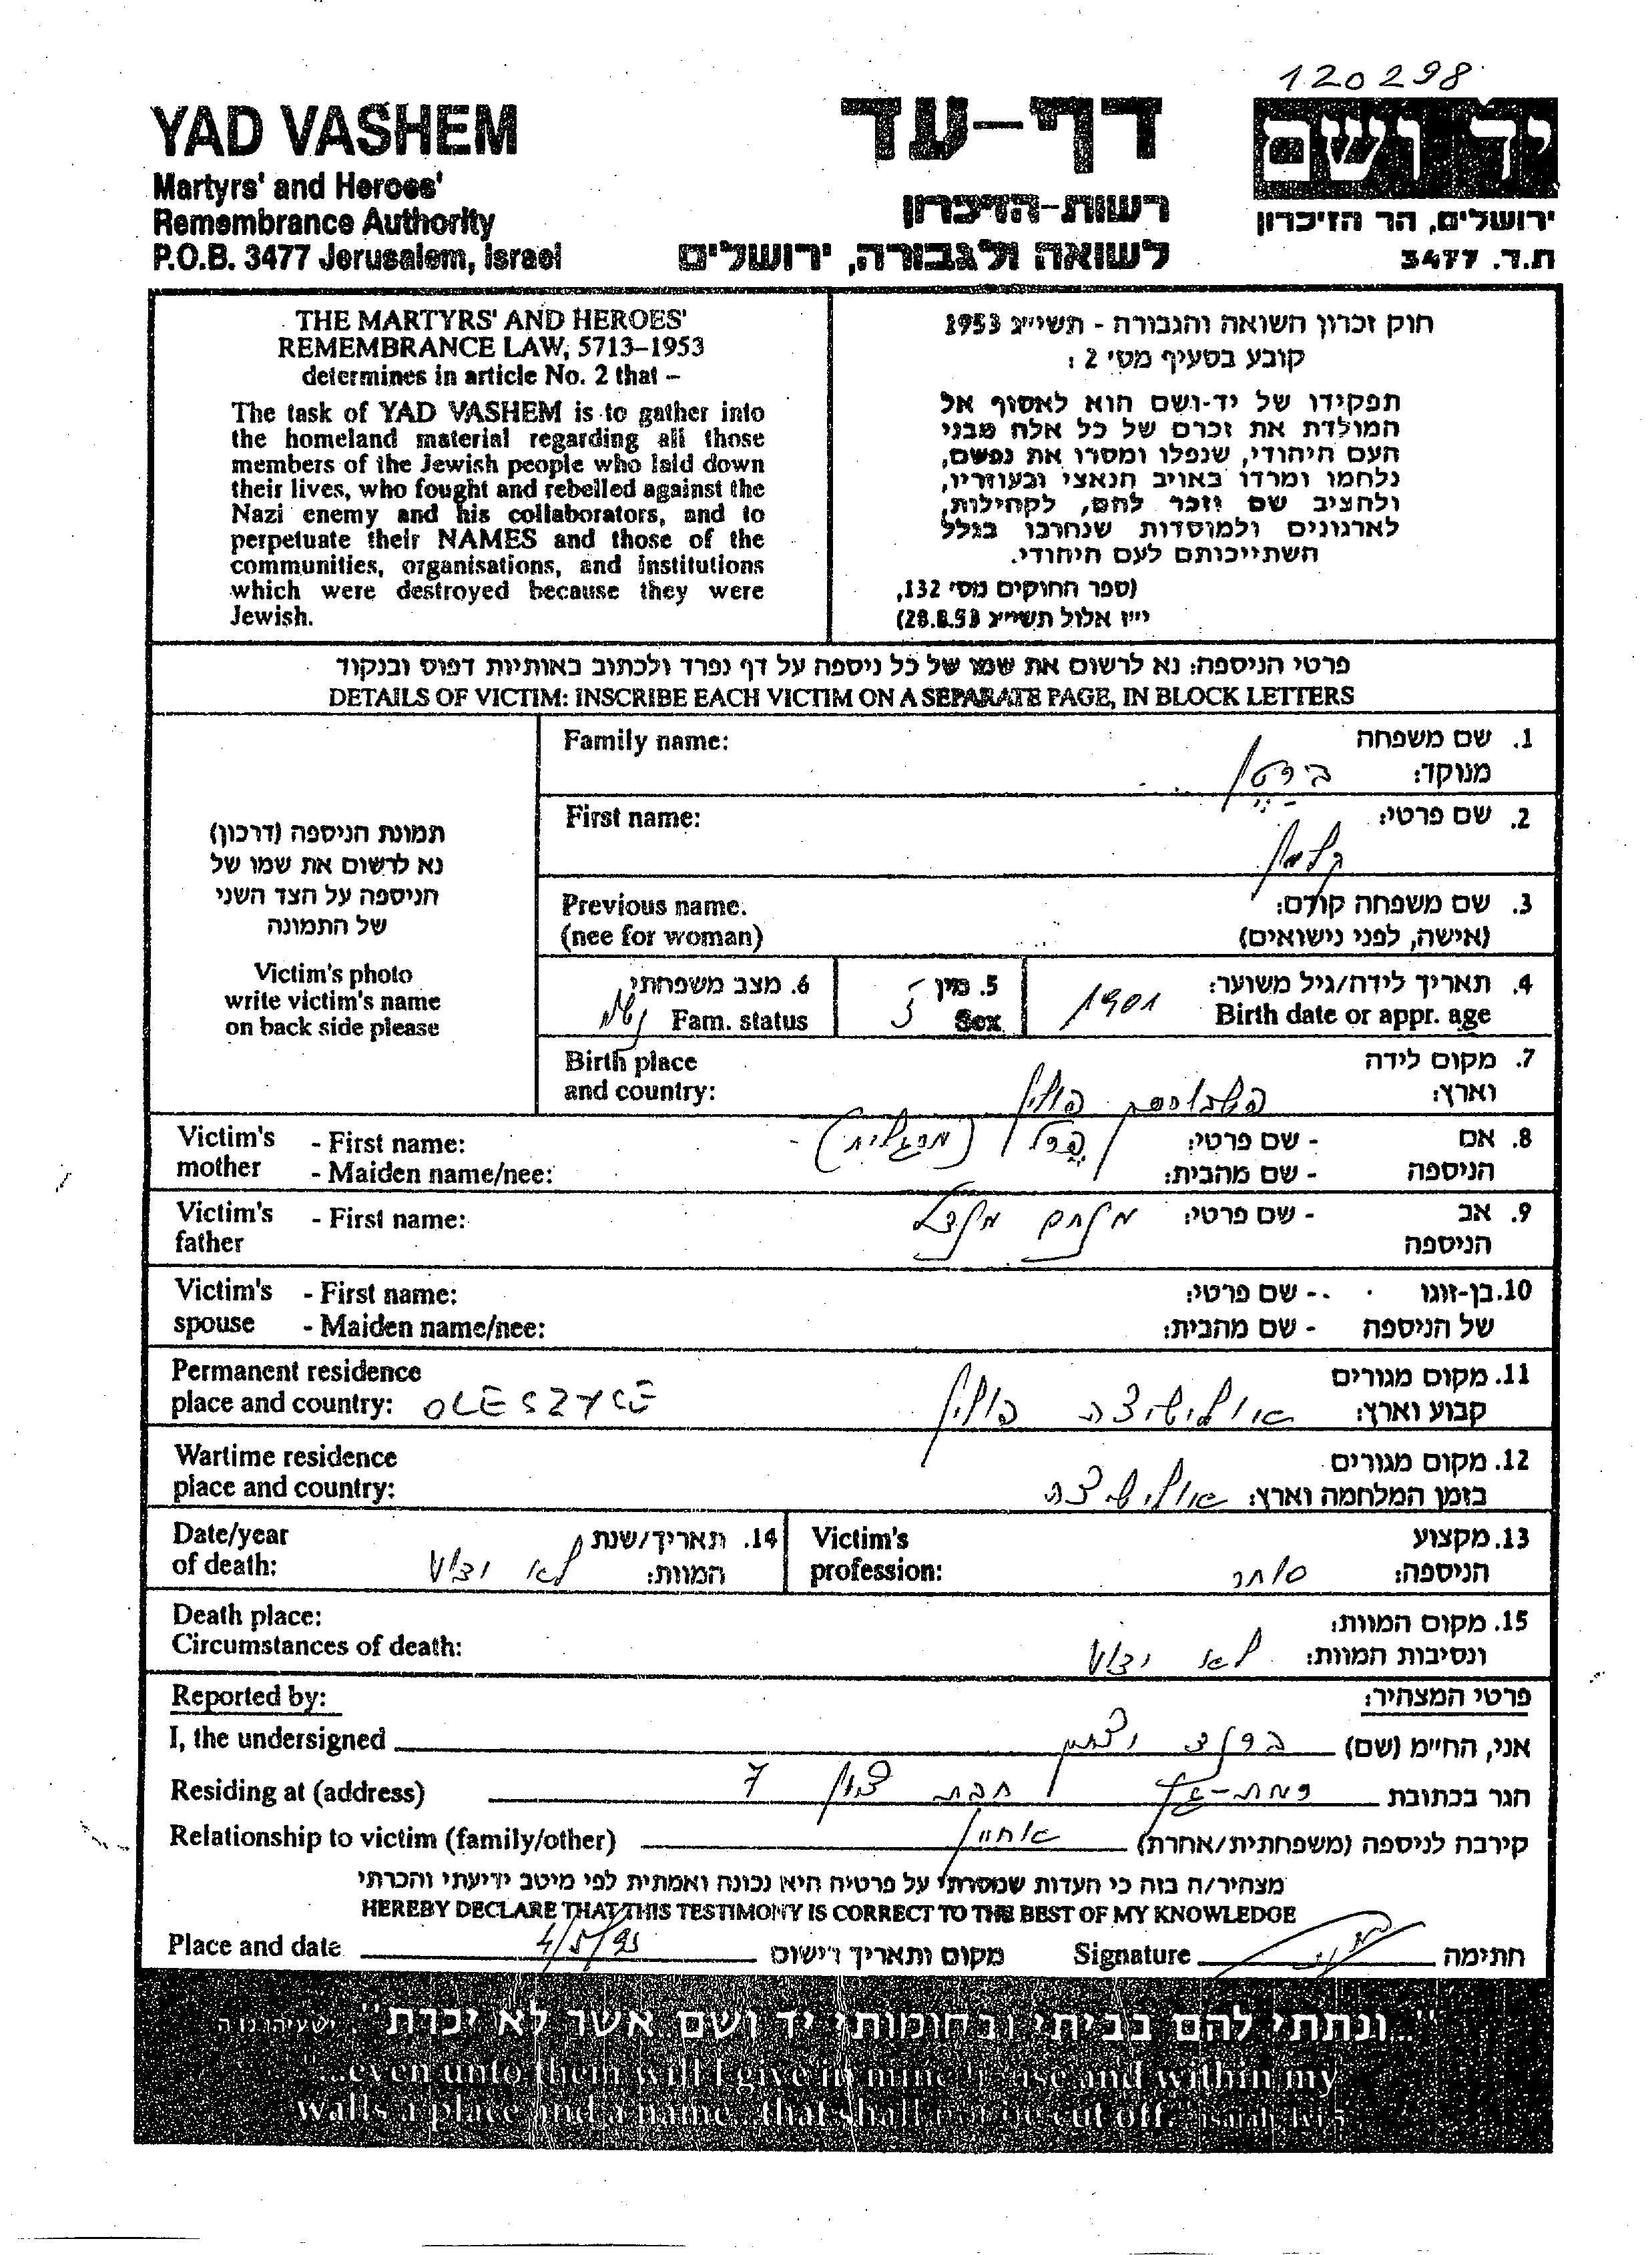 120298
YAD VASHEM
Martyrs' and Heroes'
Remembrance Authority
P.O.B. 3477 Jerusalem, Israel
דף-עד
רשות-הזיכרון
לשואה ולגבורה, ירושלים
יד ושם
ירושלים, הר הזיכרון
ת.ד. 3477
THE MARTYRS' AND HEROES'
REMEMBRANCE LAW, 5713–1953
determines in article No. 2 that –
The task of YAD VASHEM is to gather into
the homeland material regarding all those
members of the Jewish people who laid down
their lives, who fought and rebelled against the
Nazi enemy and his collaborators, and to
perpetuate their NAMES and those of the
communities, organisations, and institutions
which were destroyed because they were
Jewish.
חוק זכרון השואה והגבורה - תשי״ג 1953
קובע בסעיף מס׳ 2 :
תפקידו של יד-ושם הוא לאסוף אל
המולדת את זכרם של כל אלה מבני
העם היהודי, שנפלו ומסרו את נפשם,
נלחמו ומרדו באויב הנאצי ובעוזריו,
ולהציב שם וזכר להם, לקהילות,
לארגונים ולמוסדות שנחרבו בגלל
השתייכותם לעם היהודי.
(ספר החוקים מס׳ 132,
י״ז אלול תשי״ג 28.8.53)
פרטי הניספה: נא לרשום את שמו של כל ניספה על דף נפרד ולכתוב באותיות דפוס ובנקוד
DETAILS OF VICTIM: INSCRIBE EACH VICTIM ON A SEPARATE PAGE, IN BLOCK LETTERS
תמונת הניספה (דרכון)
נא לרשום את שמו של
הניספה על הצד השני
של התמונה
Victim's photo
write victim's name
on back side please
Family name:
1. שם משפחה
מנוקד:
First name:
2. שם פרטי:
קלמן
Previous name.
(nee for woman)
3. שם משפחה קודם:
(אישה, לפני נישואים)
4. תאריך לידה/גיל משוער:
Birth date or appr. age
1901
5. מין
Sex
ז
6. מצב משפחתי
Fam. status
נשוי
Birth place
and country:
7. מקום לידה
וארץ:
פולין
Victim's - First name:
mother - Maiden name/nee:
8. אם - שם פרטי:
הניספה - שם מהבית:
פרל (מרגלית)
Victim's - First name:
father
9. אב - שם פרטי:
הניספה
מנחם מנדל
Victim's - First name:
spouse - Maiden name/nee:
10. בן-זוגו - שם פרטי:
של הניספה - שם מהבית:
Permanent residence
place and country: OLESZYCE
11. מקום מגורים
קבוע וארץ: אולשיצה פולין
Wartime residence
place and country:
12. מקום מגורים
בזמן המלחמה וארץ: אולישיצה
Date/year
of death:
14. תאריך/שנת
המוות: לא ידוע
Victim's
profession:
13. מקצוע
הניספה: סוחר
Death place:
Circumstances of death:
15. מקום המוות:
ונסיבות המוות: לא ידוע
Reported by:
פרטי המצהיר:
I, the undersigned
אני, החיימ (שם)
Residing at (address)
הגר בכתובת רמת-גן חבת ציון 7
Relationship to victim (family/other)
קירבה לניספה (משפחתית/אחרת) אחיין
מצהיר/ה בזה כי העדות שמסרתי על פרטיה היא נכונה ואמתית לפי מיטב ידיעתי והכרתי
HEREBY DECLARE THAT THIS TESTIMONY IS CORRECT TO THE BEST OF MY KNOWLEDGE
Place and date 4/5/95 מקום ותאריך רישום
Signature חתימה
"...ונתתי להם בביתי ובחומותי יד ושם אשר לא יכרת" ישעיהו נו ה
"...even unto them will I give in mine house and within my
walls a place and a name...that shall not be cut off." Isaiah, lvi 5